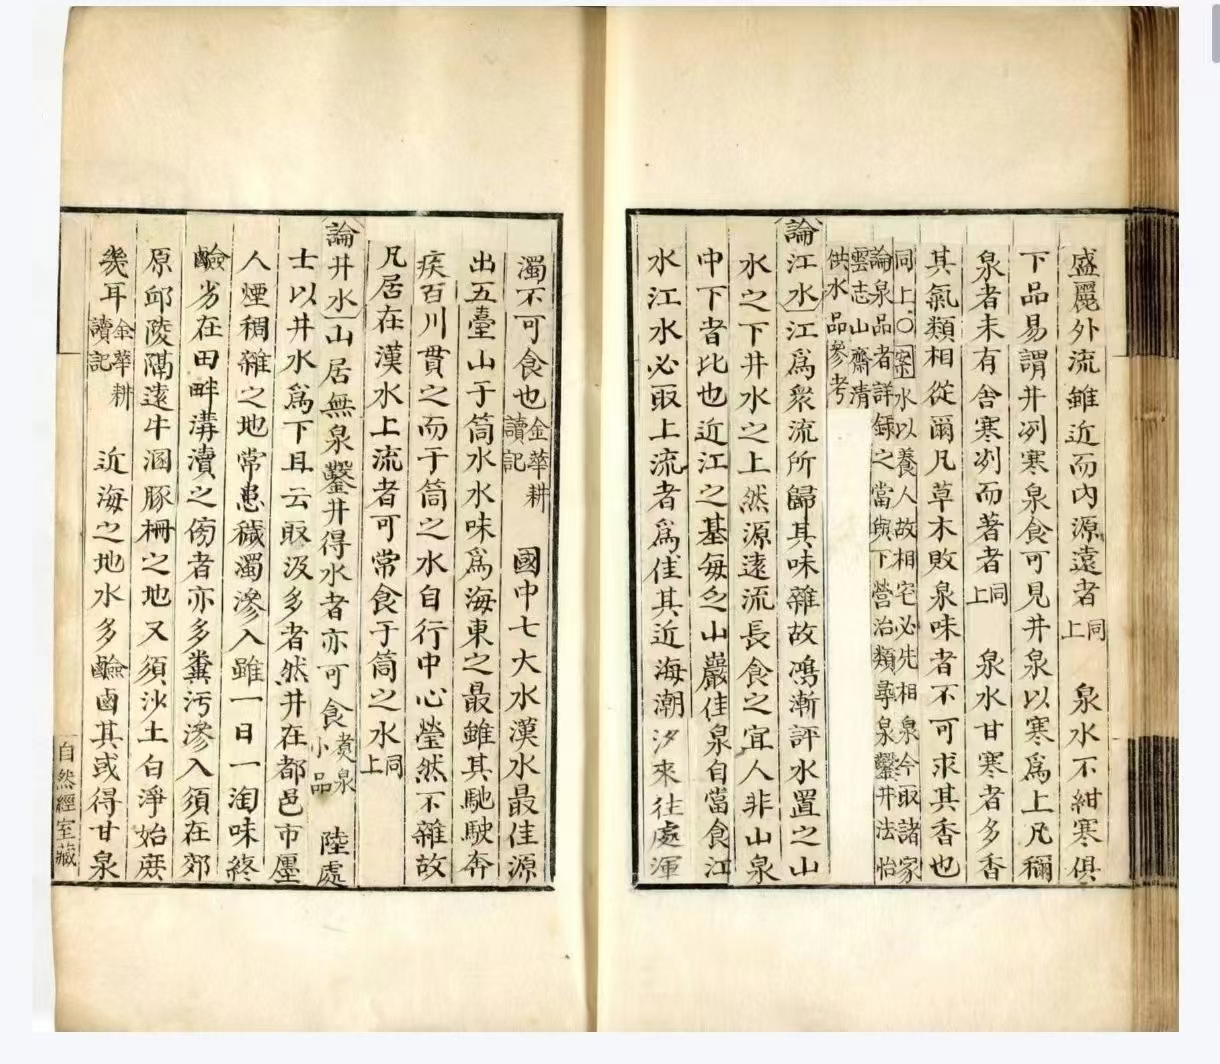 盛麗外流雖近而内源遠者同上　泉水不紺寒俱
下品易謂井冽寒泉食可見井泉以寒爲上凡穪
泉者未有舍寒冽而著者同上　泉水甘寒者多香
其氣類相從爾凡草木敗泉味者不可求其香也
同上○案水以養人故相宅必先相泉今取諸家
論泉品者詳録之當與下營治類尋泉鑿井法怡
雲志山齋清
供水品參考
論江水江爲衆流所歸其味雜故鴻漸評水置之山
水之下井水之上然源遠流長食之宜人非山泉
中下者比也近江之基每乏山巖佳泉自當食江
水江水必取上流者爲佳其近海潮汐來往處渾
濁不可食也金華耕讀記　國中七大水漢水最佳源
出五臺山于筒水水味爲海東之最雖其馳駛奔
疾百川貫之而于筒之水自行中心瑩然不雜故
凡居在漢水上流者可常食于筒之水同上
論井水山居無泉鑿井得水者亦可食煑泉小品　陸處
士以井水爲下且云取汲多者然井在都邑市廛
人煙稠雜之地常患穢濁滲入雖一日一淘味終
鹼劣在田畔溝瀆之傍者亦多糞汚滲入須在郊
原邱陵隔遠牛溷豚柵之地又須沙土白淨始庶
幾耳金華耕讀記　近海之地水多鹼鹵其或得甘泉
自然經室藏